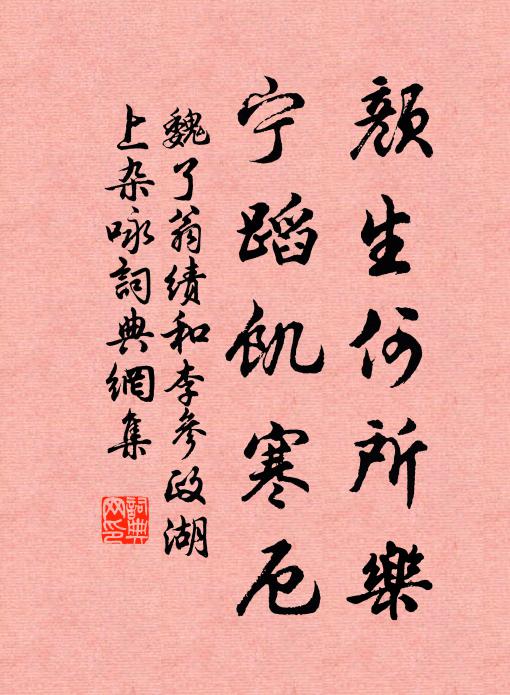 颜生何所樂
宁蹈飢寒厄
魏了翁绩和李参政湖
上杂咏詞典網集
詞典网印